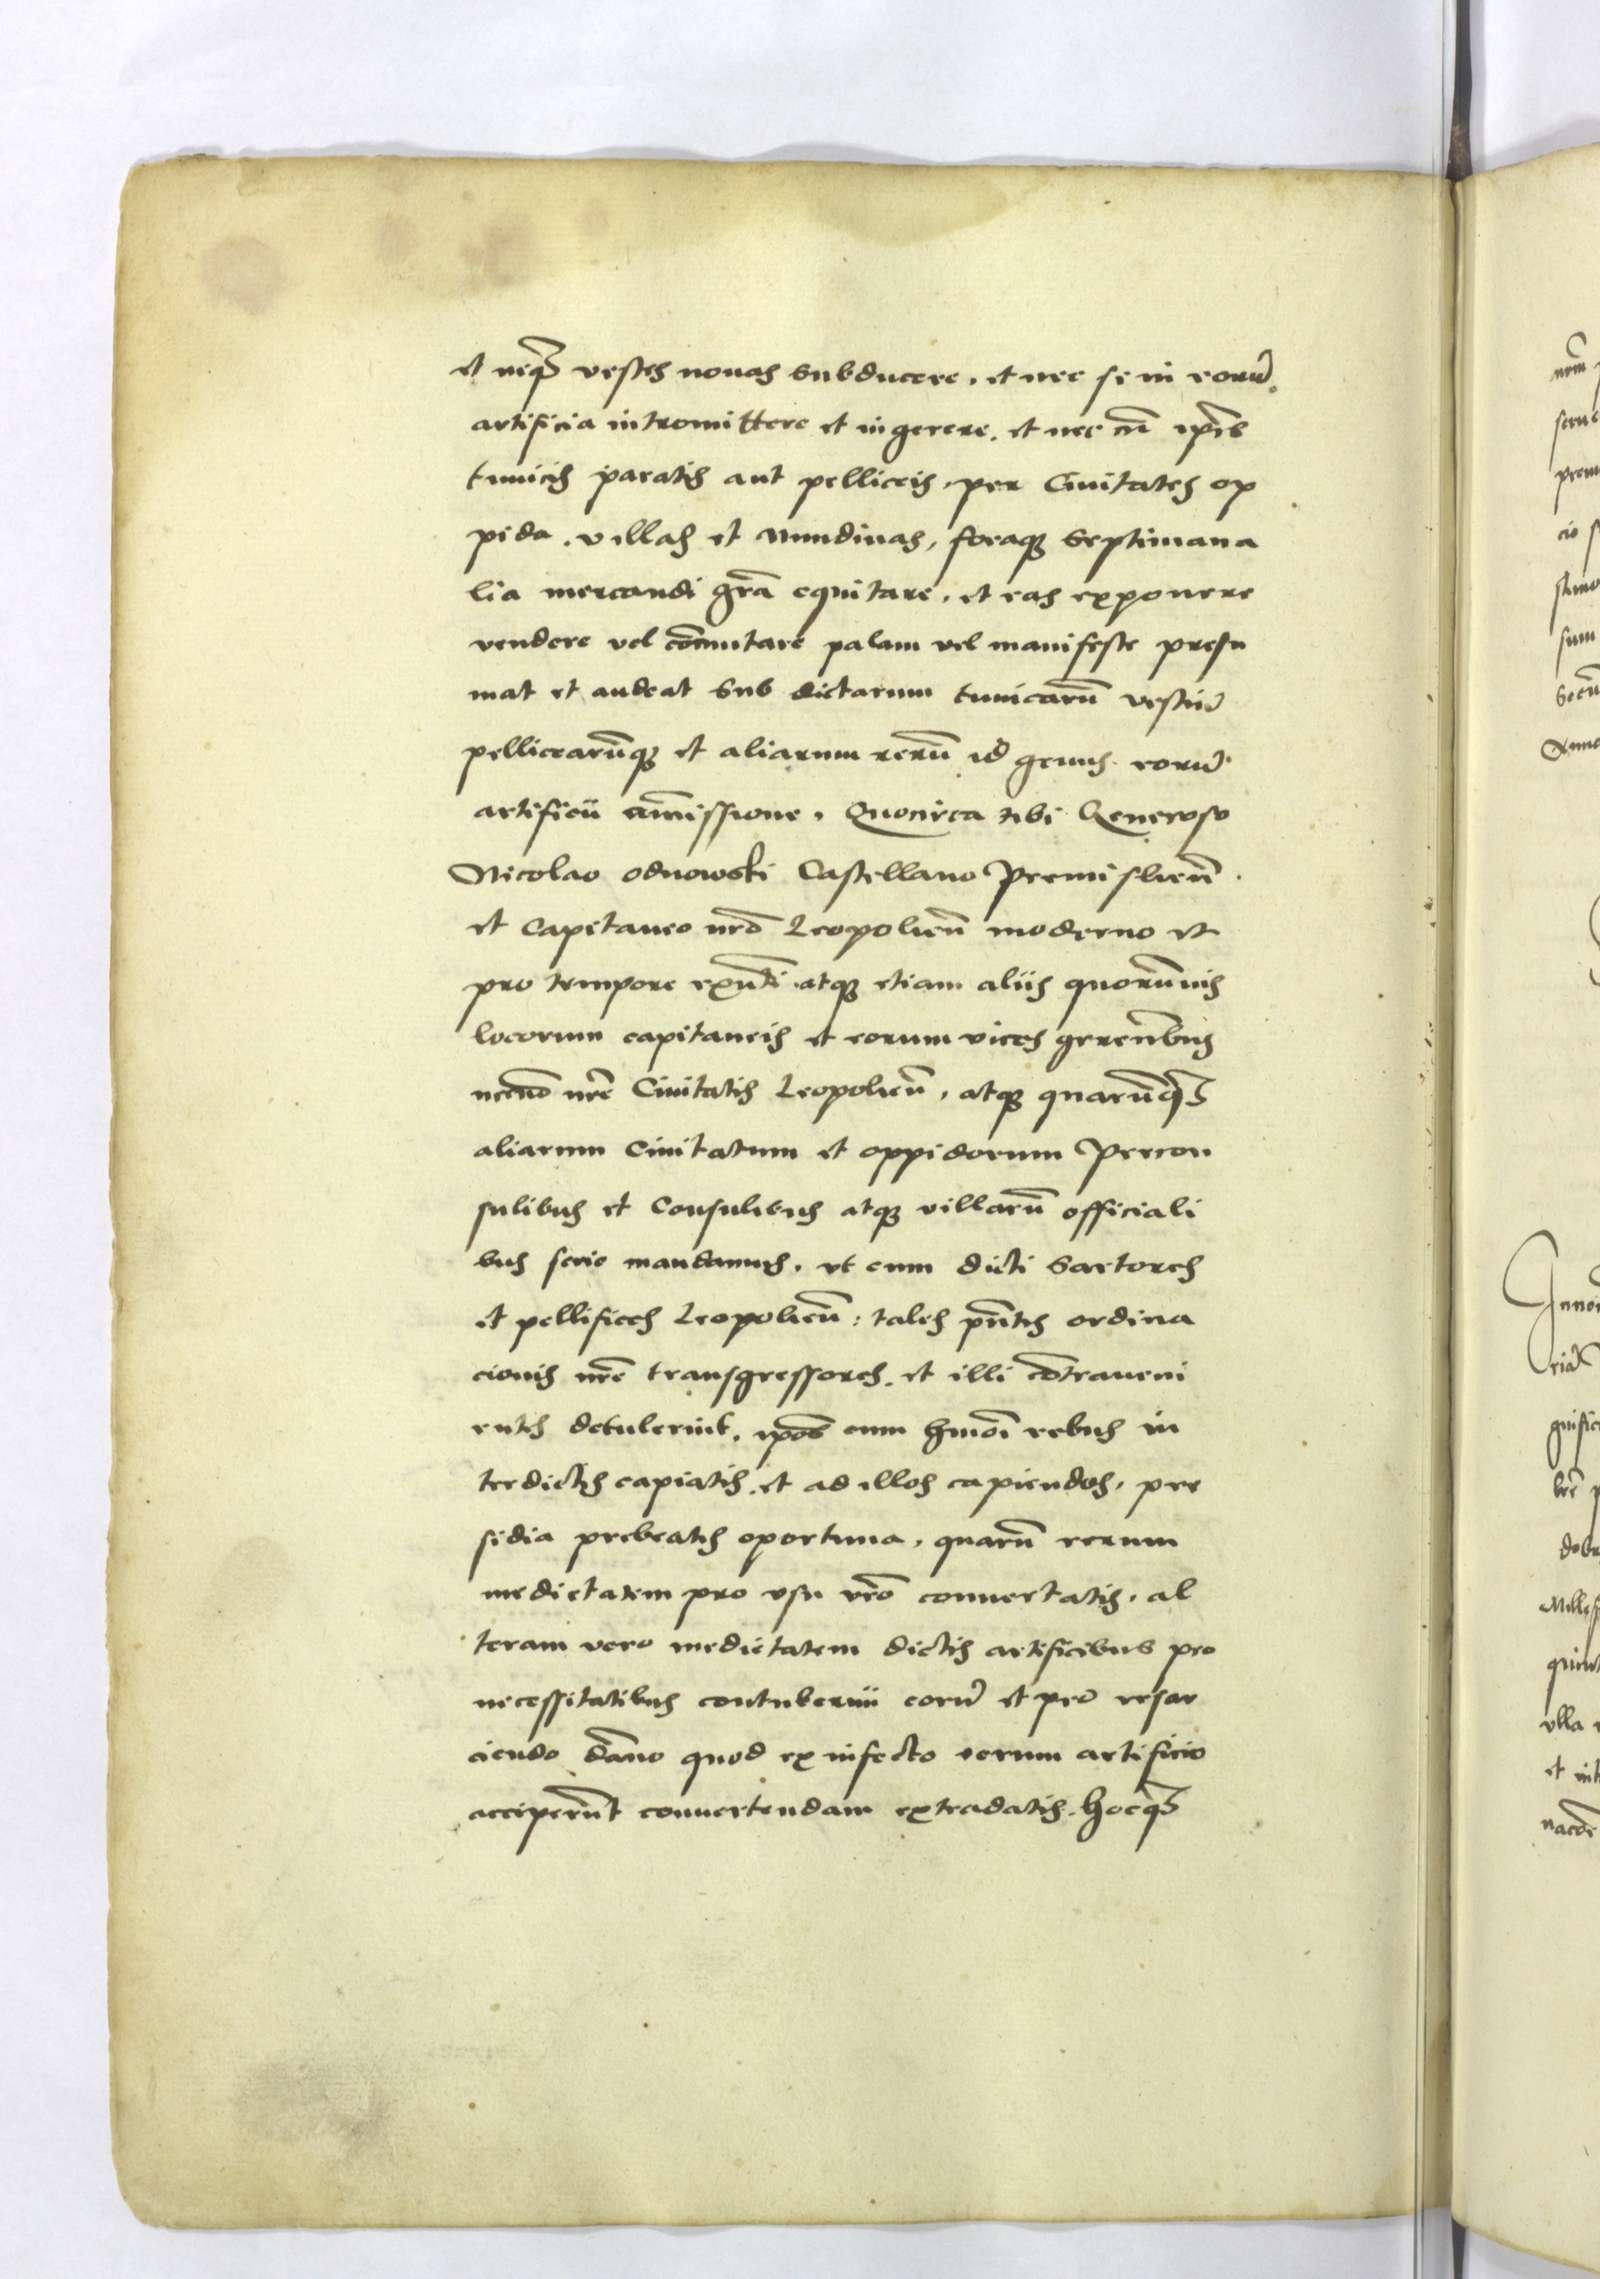 et neqȝ vestes nouas subducere, et nec se in eorū
artificia intromittere et ingerere. et nec cū ip̄is
tunicis paratis aut pelliceis, per Ciuitates op
pida, villas et nundinas, foraqȝ septimana
lia mercandi gr̄a equitare, et eas exponere
vendere vel cōmutare palam vel manifeste presu
mat et audeat sub dictarum tunicarū vestiū
pellicearūqȝ et aliarum rerū id genus eorū
artificū amissione. Quocirca tibi Generoso
Nicolao Odnowski Castellano Premislien̄.
et Capitaneo nr̄o Leopolien̄ moderno et
pro tempore exn̄ti atqȝ etiam aliis quorumuis
locorum capitaneis et eorum vices gerentibus
necnō nr̄e Ciuitatis Leopolien̄, atqȝ quarūcqȝ
aliarum Ciuitatum et oppidorum Precon
sulibus et Consulibus atqȝ villarū officiali
bus serio mandamus. vt cum dicti Sartores
et pellifices Leopolien̄: tales pn̄tis ordina
cionis nr̄e transgressores. et illi cōtraueni
entes detulerint. ip̄os cum hmōi rebus in
terdictis capiatis. et ad illos capiendos, pre
sidia prebeatis oportuna, quarū rerum
medietatem pro vsu vr̄o conuertatis, al
teram vero medietatem dictis artificibus pro
necessitatibus contubernii eorū et pro resar
ciendo dāno quod ex infecto eorum artificio
acciperēt conuertendam extradatis. hocqȝ